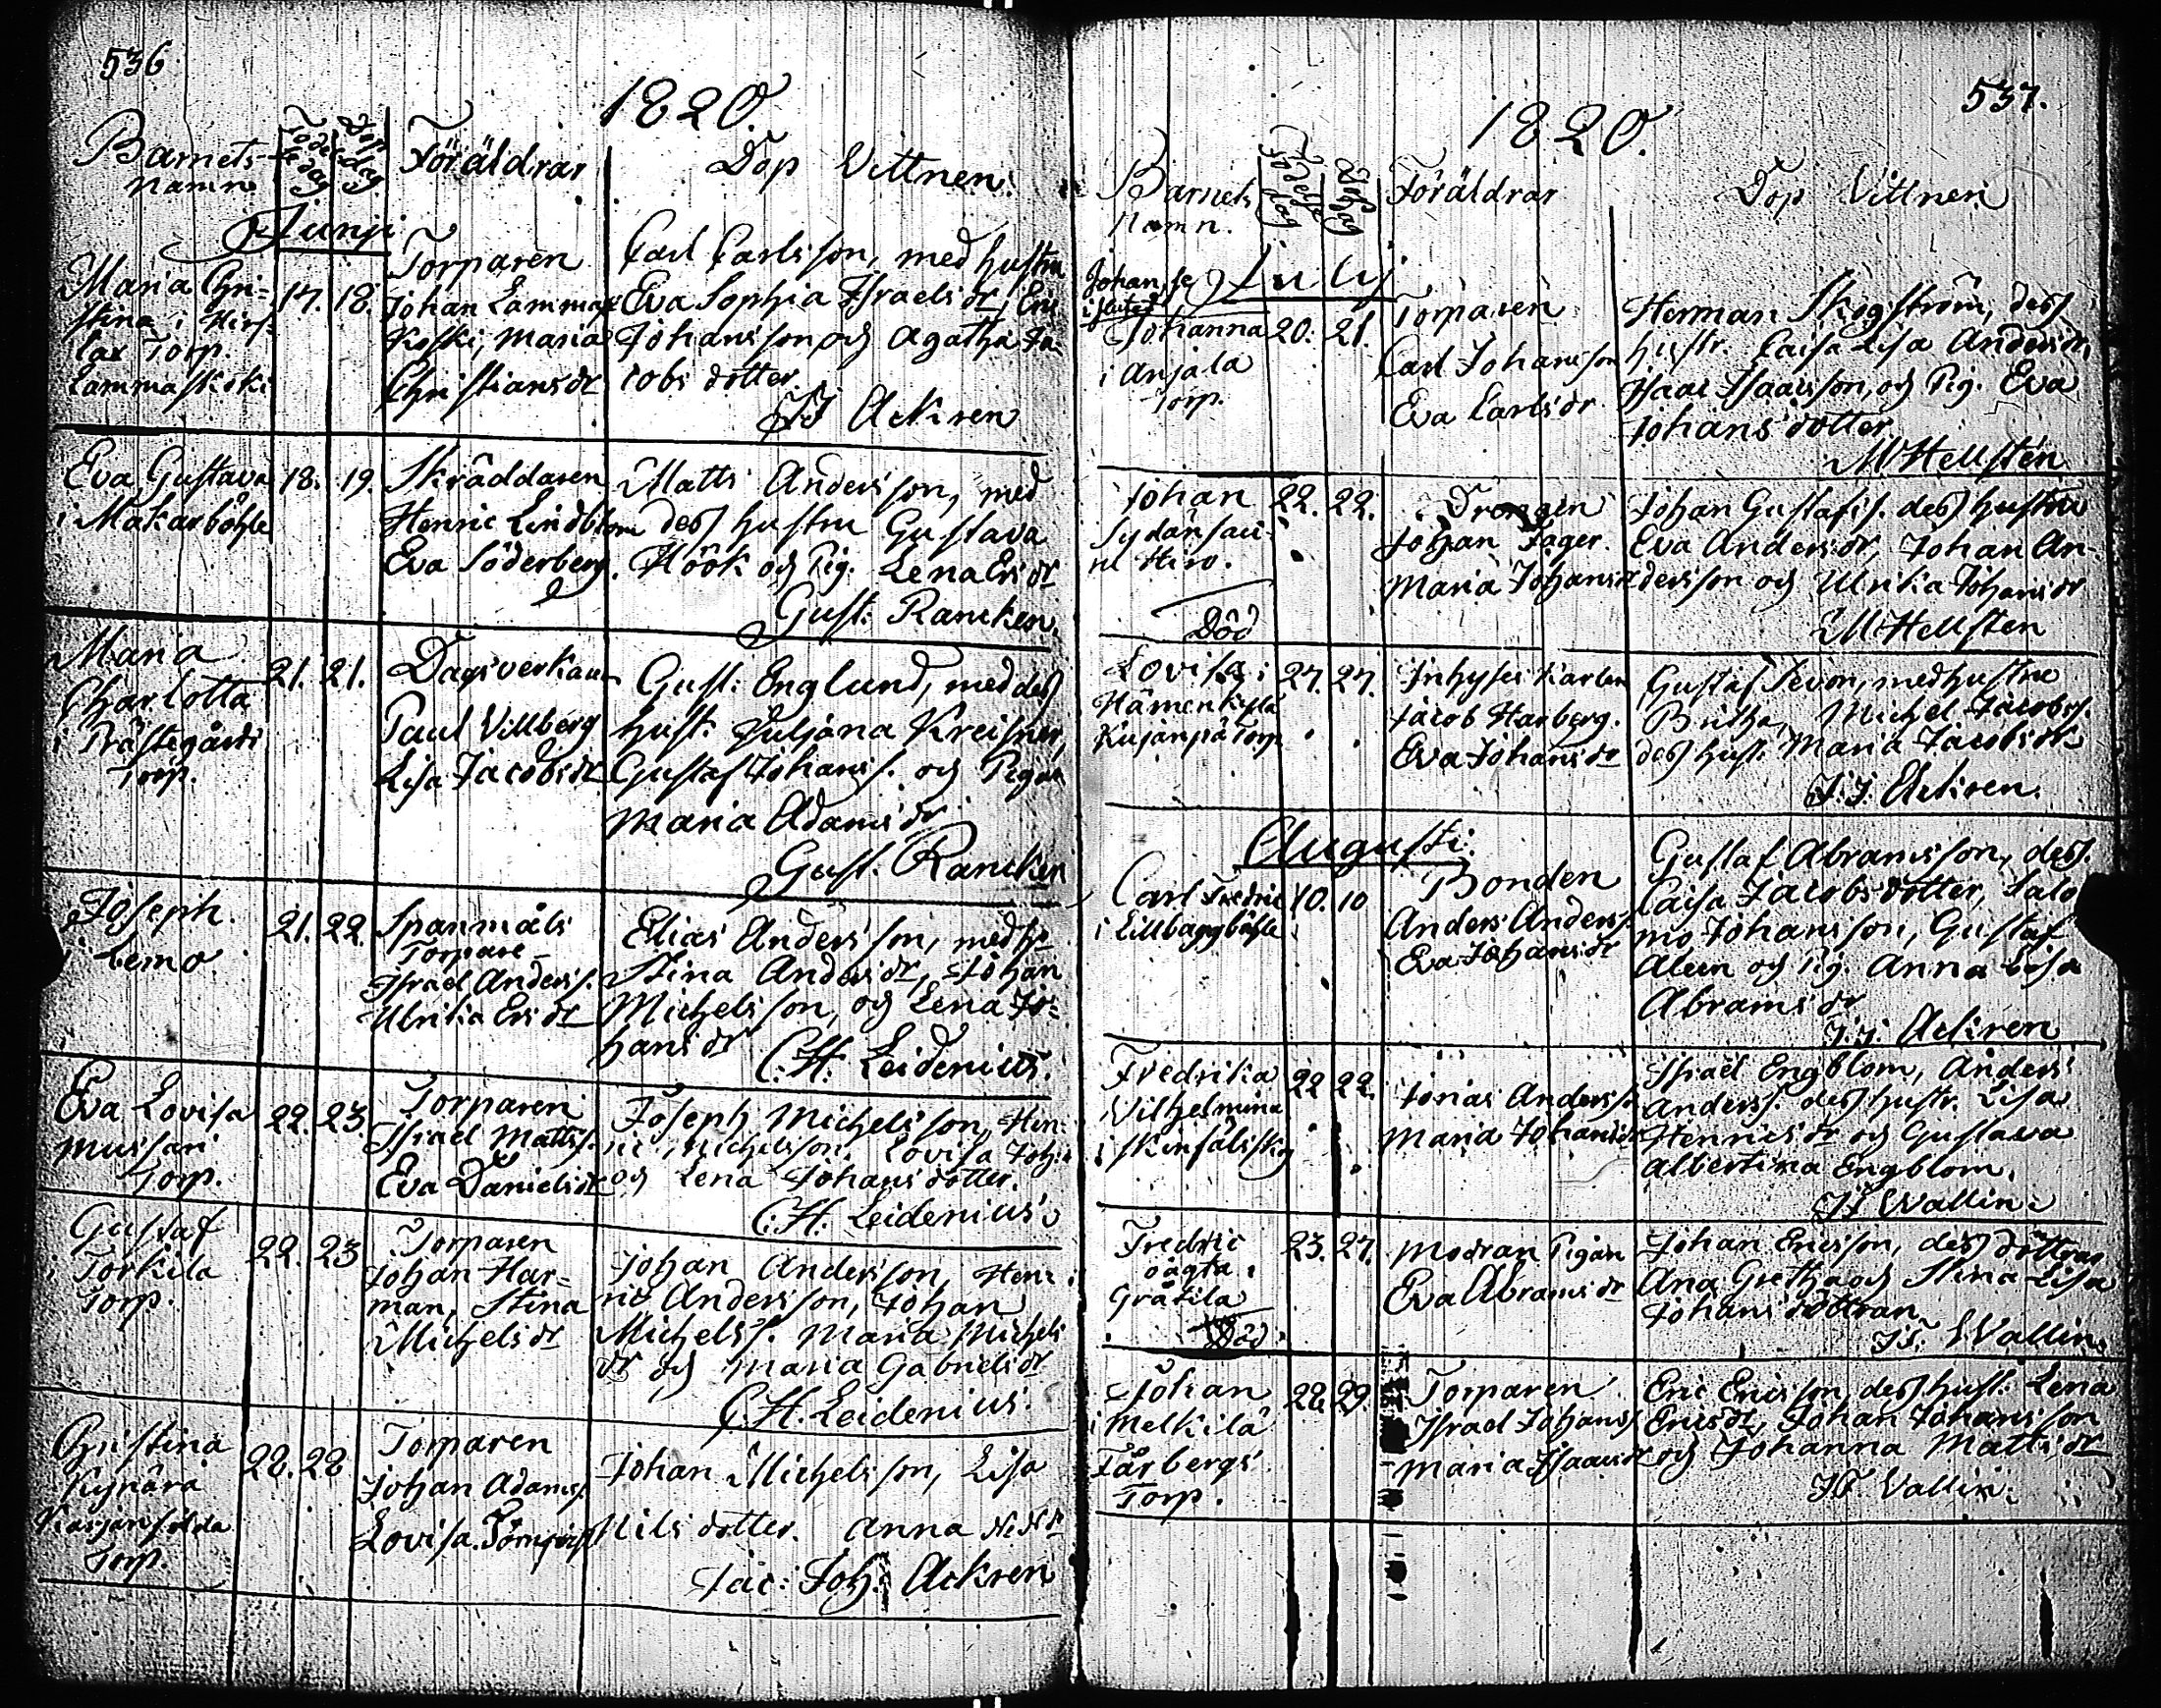 536
1820.
Barnets
namn
Födelse
dag
Dop
dag
Föräldrar
Dop Vittnen.
Junji
Maria Chri=
stina i Hirs-
lax Torp.
Lammaskoski
17. 18.
Torparen
Johan Lammas
Koski, Maria
Christiansdr
Carl Carlsson, med hustru
Eva Sophia Israelsdr, Eric
Johansson och Agatha Ja-
cobs dotter.
JJ Ackren
Eva Gustava
i Makarböhle
18. 19.
Skräddaren
Henric Lindblom
Eva Söderberg.
Matts Andersson, med
dess hustru Gustava
Höök och Pig. Lena Ersdr
Gust: Rancken.
Maria
Charlotta
i Prästegårds
Torp.
21. 21.
Dagsverkaren
Paul Villberg
Lisa Jacobsdr
Gust: Englund, med dess
hust: Juljana Kreisner,
Gustaf Johanss. och Pigan
Maria Adamsdr
Gust. Rancken
Joseph.
i Lemo
21. 22.
Spanmåls
Torpare
Israel Anderss.
Ulrika Ersdr
Elias Andersson, med h.
Stina Andersdr, Johan
Michelsson, och Lena Jo=
hansdr
C.H. Leidenius.
Eva Lovisa
Mussari
Torp.
22. 23.
Torparen
Israel Mattss.
Eva Danielsdr
Joseph Michelsson, Hen-
ric Michelsson. Lovisa Joh.
och Lena Johans dotter.
C.H. Leidenius.
Gustaf
i Torkila
Torp.
22. 23
Torparen
Johan Har=
man, Stina
Michelsdr
Johan Andersson, Hen-
ric Andersson, Johan
Michelss. Maria Michels
dr och Maria Gabrielsdr
C.H. Leidenius.
Christina
Torp.
28. 28
Torparen
Johan Adamss.
Lovisa
Johan Michelsson, Lisa
Nils dotter. Anna
Jac: Joh: Ackren
537.
1820.
Barnets
Namn.
Födelse
dag
Dop
dag
Föräldrar
Dop Vittnen
July
Johanna
i Anjala
Torp.
20. 21.
Torparen
Carl Johansson
Eva Carlsdr.
Herman Skogström, dess
hustr. Caisa Lisa Andersdr,
Isaac Isaacsson, och Pig. Eva
Johans dotter
M Hellsten
Johan
Hiro.
Död
22. 22.
Drengen
Johan Jäger.
Maria Johansdr
Johan Gustafss. dess hustru
Eva Andersdr, Johan An-
dersson och Ulrika Johansdr
M Hellsten
Lovisa i
Hämenkylä
Kujanpä Torp
27. 27.
Inhyses Karlen
Jacob Harberg.
Eva Johansdr
Gustaf Sevon, med hustru
Britha, Michel Jacobss.
dess hust. Maria Jacobsdr
J.J. Ackren.
Augusti.
Carl Fredric
i Lillbaggböhle
10. 10
Bonden
Anders Anderss.
Eva Johansdr
Gustaf Abramsson, dess.
Caisa Jacobs dotter, Salo
mo Johansson, Gustaf
Aleen och Pig. Anna Lisa
Abramsdr
J.J. Ackren
Fredrika
Vilhelmina
i Skinsålsskog
22 22.
Jonas Anderss.
Maria Johansdr
Israël Engblom, Anders
Anderss. dess hustr. Lisa
Henricsdr och Gustava
Albertina Engblom.
JF Wallin.
Fredric
oägta i
Gråtila
Död.
23. 27.
Modran Pigan
Eva Abramsdr
Johan Ericsson, dess döttrar
Ana Gretha och Stina Lisa
Johans döttrar
JF. Wallin.
Johan
i Melkilä
Färbergs
Torp.
28. 29.
Torparen
Israel Johanss.
Maria Isaacsdr
Eric Ericsson, dess hust. Lena
Ericsdr, Johan Johansson
och Johanna Mattsdr
JF Vallin.